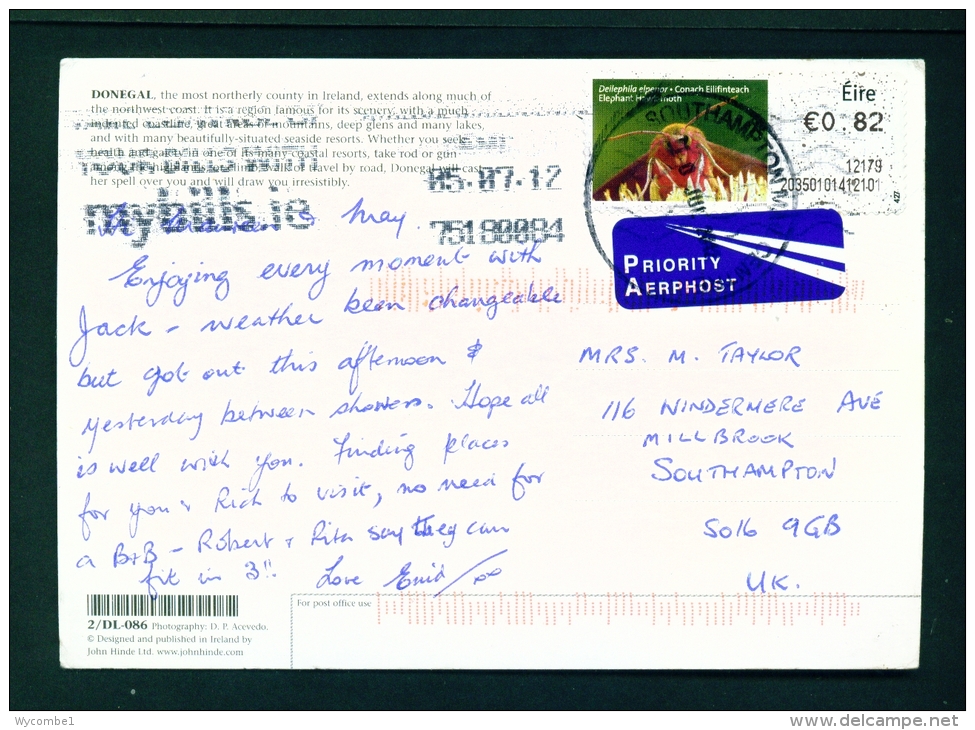 DONEGAL, the most northerly county in Ireland, extends along much of
the northwest coast. It is a region famous for its scenery, with a much
indented coastline, great areas of mountains, deep glens and many lakes,
and with many beautifully-situated seaside resorts. Whether you seek
health and gaiety in one of its many coastal resorts, take rod or gun
climb, walk or travel by road, Donegal will cast
her spell over you and will draw you irresistibly.
mybills.ie
05.07.12
75180084
May.
Enjoying every moment with
Jack - weather been changeable
but got out this afternoon &
yesterday between showers. Hope all
is well with you. Finding places
for you & Rich to visit, no need for
a B+B - Robert + Rita say they can
fit in 3!! Love Enid / xx
Deilephila elpenor • Conach Eilifinteach
Elephant Hawkmoth
Éire
€0.82
12179
20350101412101
427
SOUTHAMPTON
PRIORITY
AERPHOST
MRS. M. TAYLOR
116 WINDERMERE AVE
MILLBROOK
SOUTHAMPTON
SO16 9GB
UK.
For post office use
2/DL-086 Photography: D. P. Acevedo.
© Designed and published in Ireland by
John Hinde Ltd. www.johnhinde.com
Wycombe1
delcampe.net